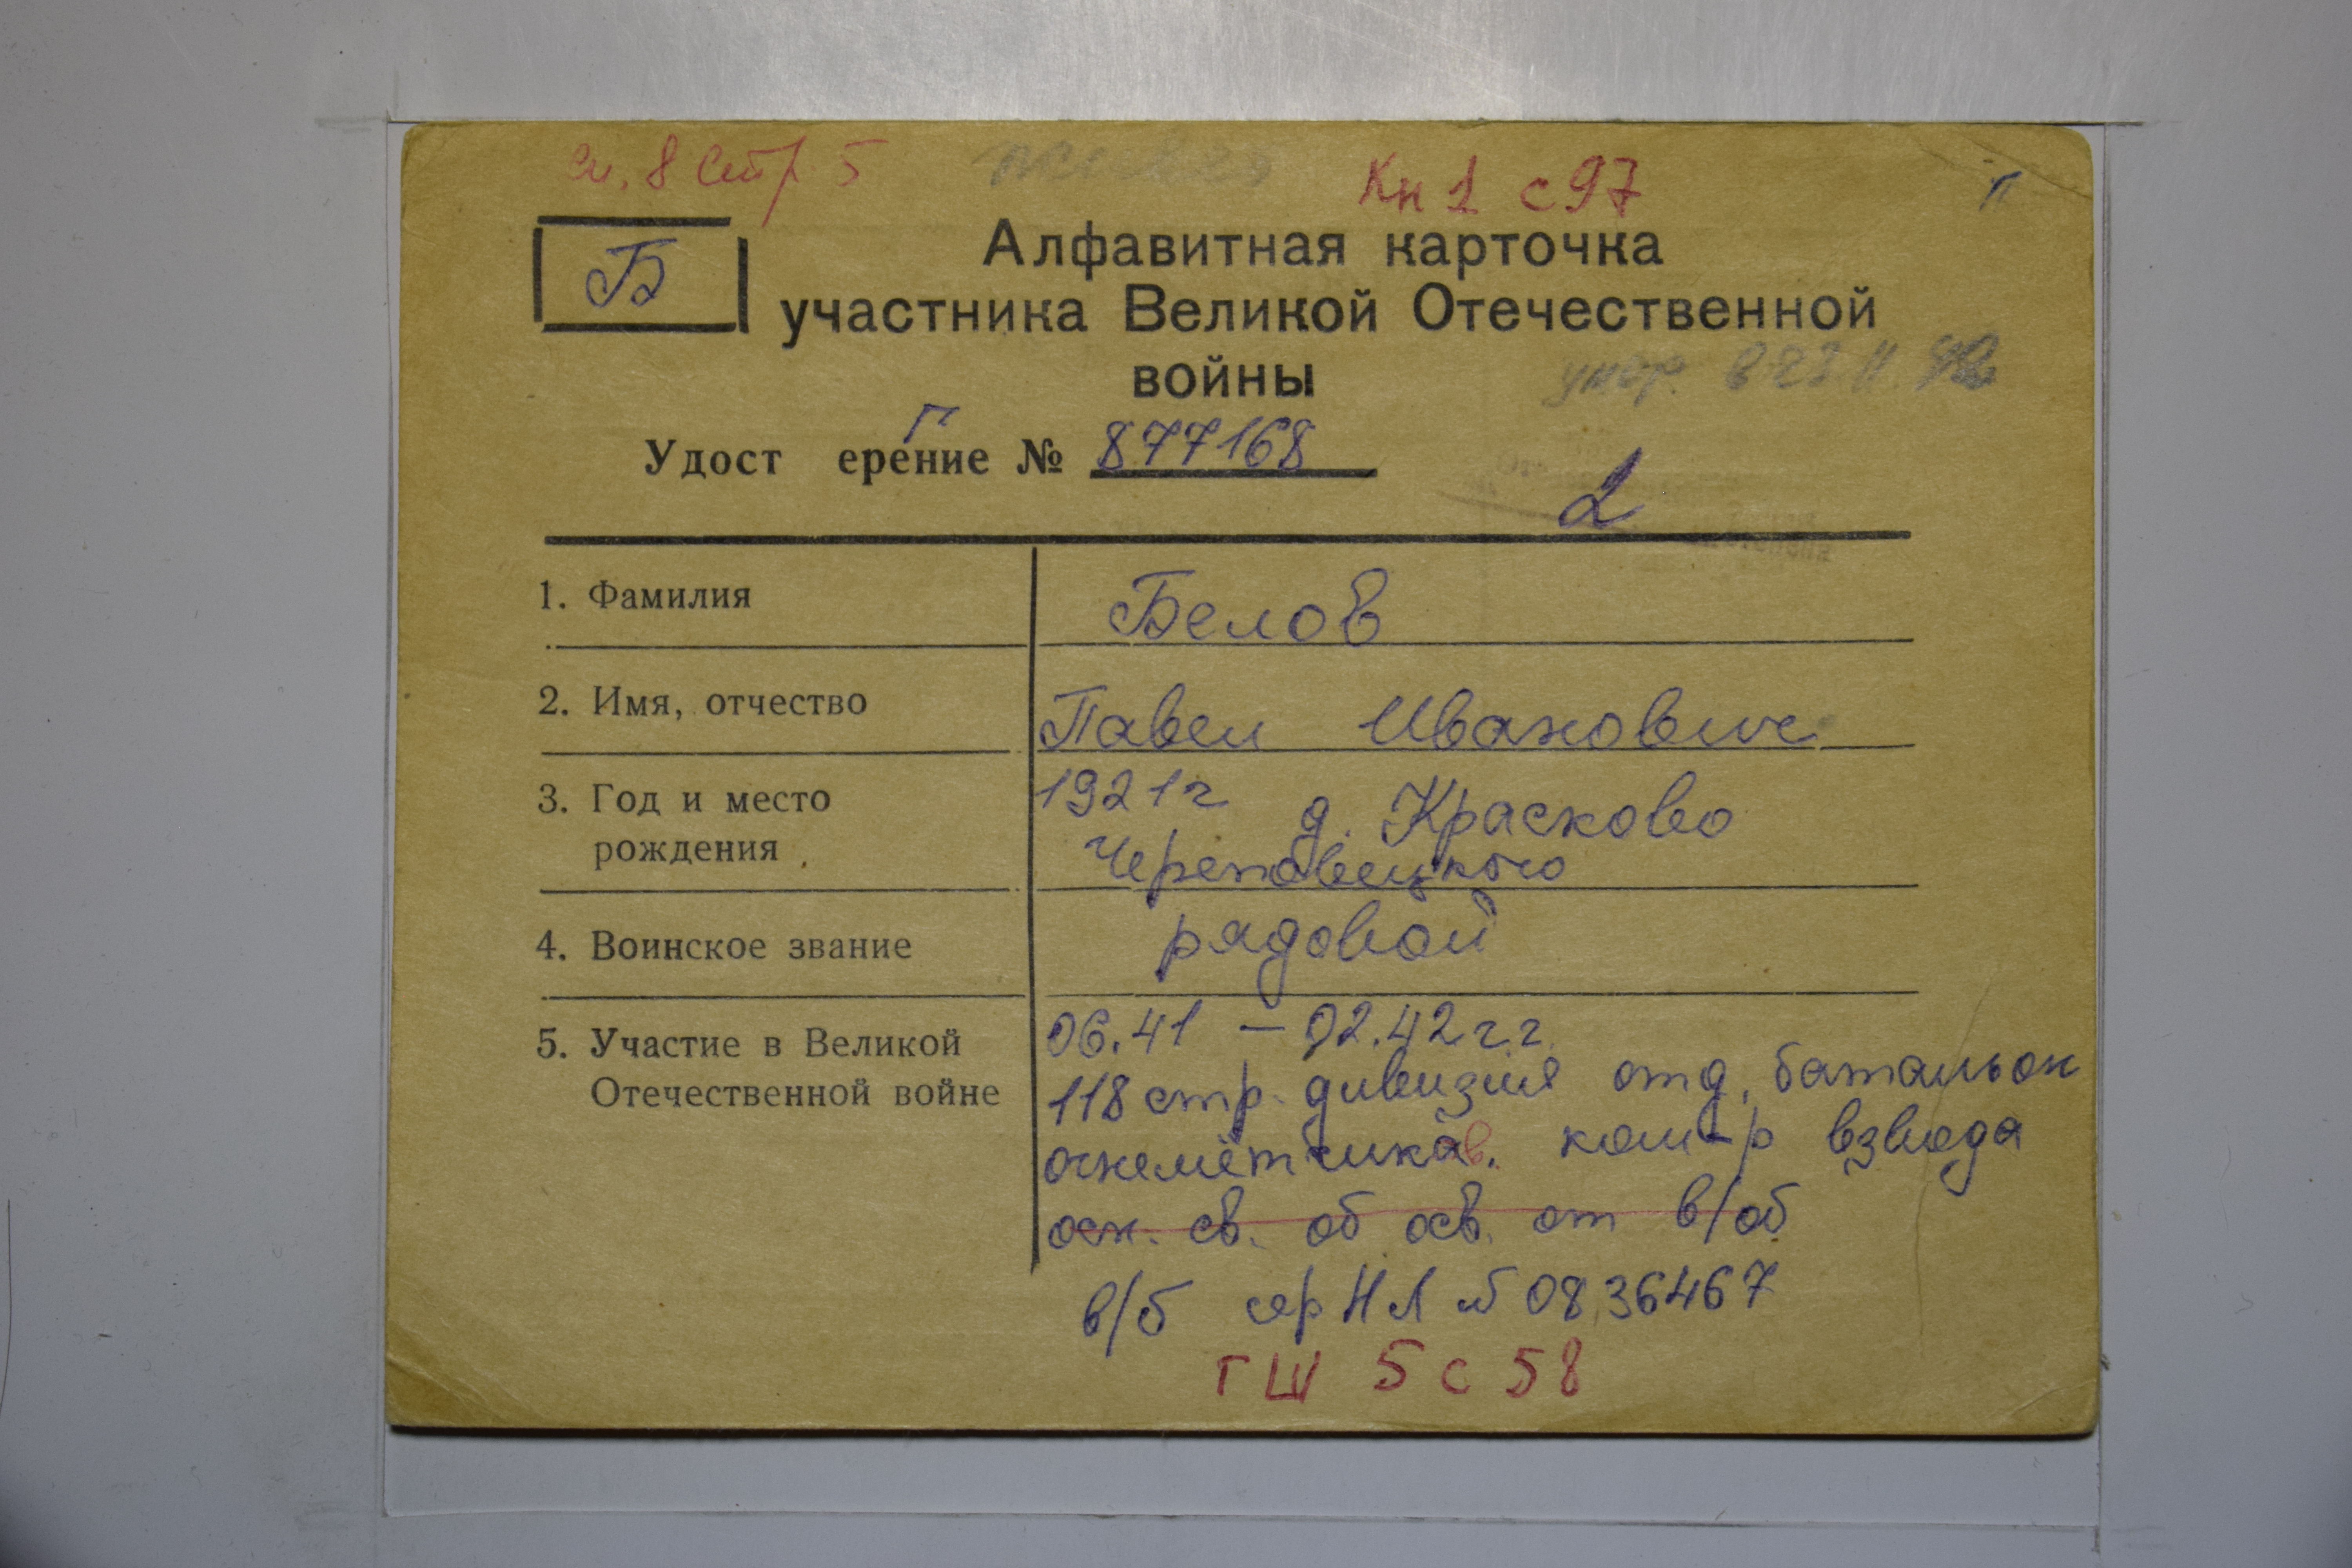 сп. 8 стр 5
Кн 1 с 97
Б
Алфавитная карточка
участника Великой Отечественной
войны
умер.
Г
Удост ерение № 877168
2
1. Фамилия Белов
2. Имя, отчество Павел Иванович
3. Год и место 1921 г д. Красково
рождения Череповецкого
4. Воинское звание рядовой
5. Участие в Великой 06.41 – 02.42 г.г.
Отечественной войне 118 стр. дивизия отд. батальон
огнемётчиков. ком-р взвода
осн. св. об осв. от в/об
в/б сер НЛ № 0836467
ГШ 5 с 58